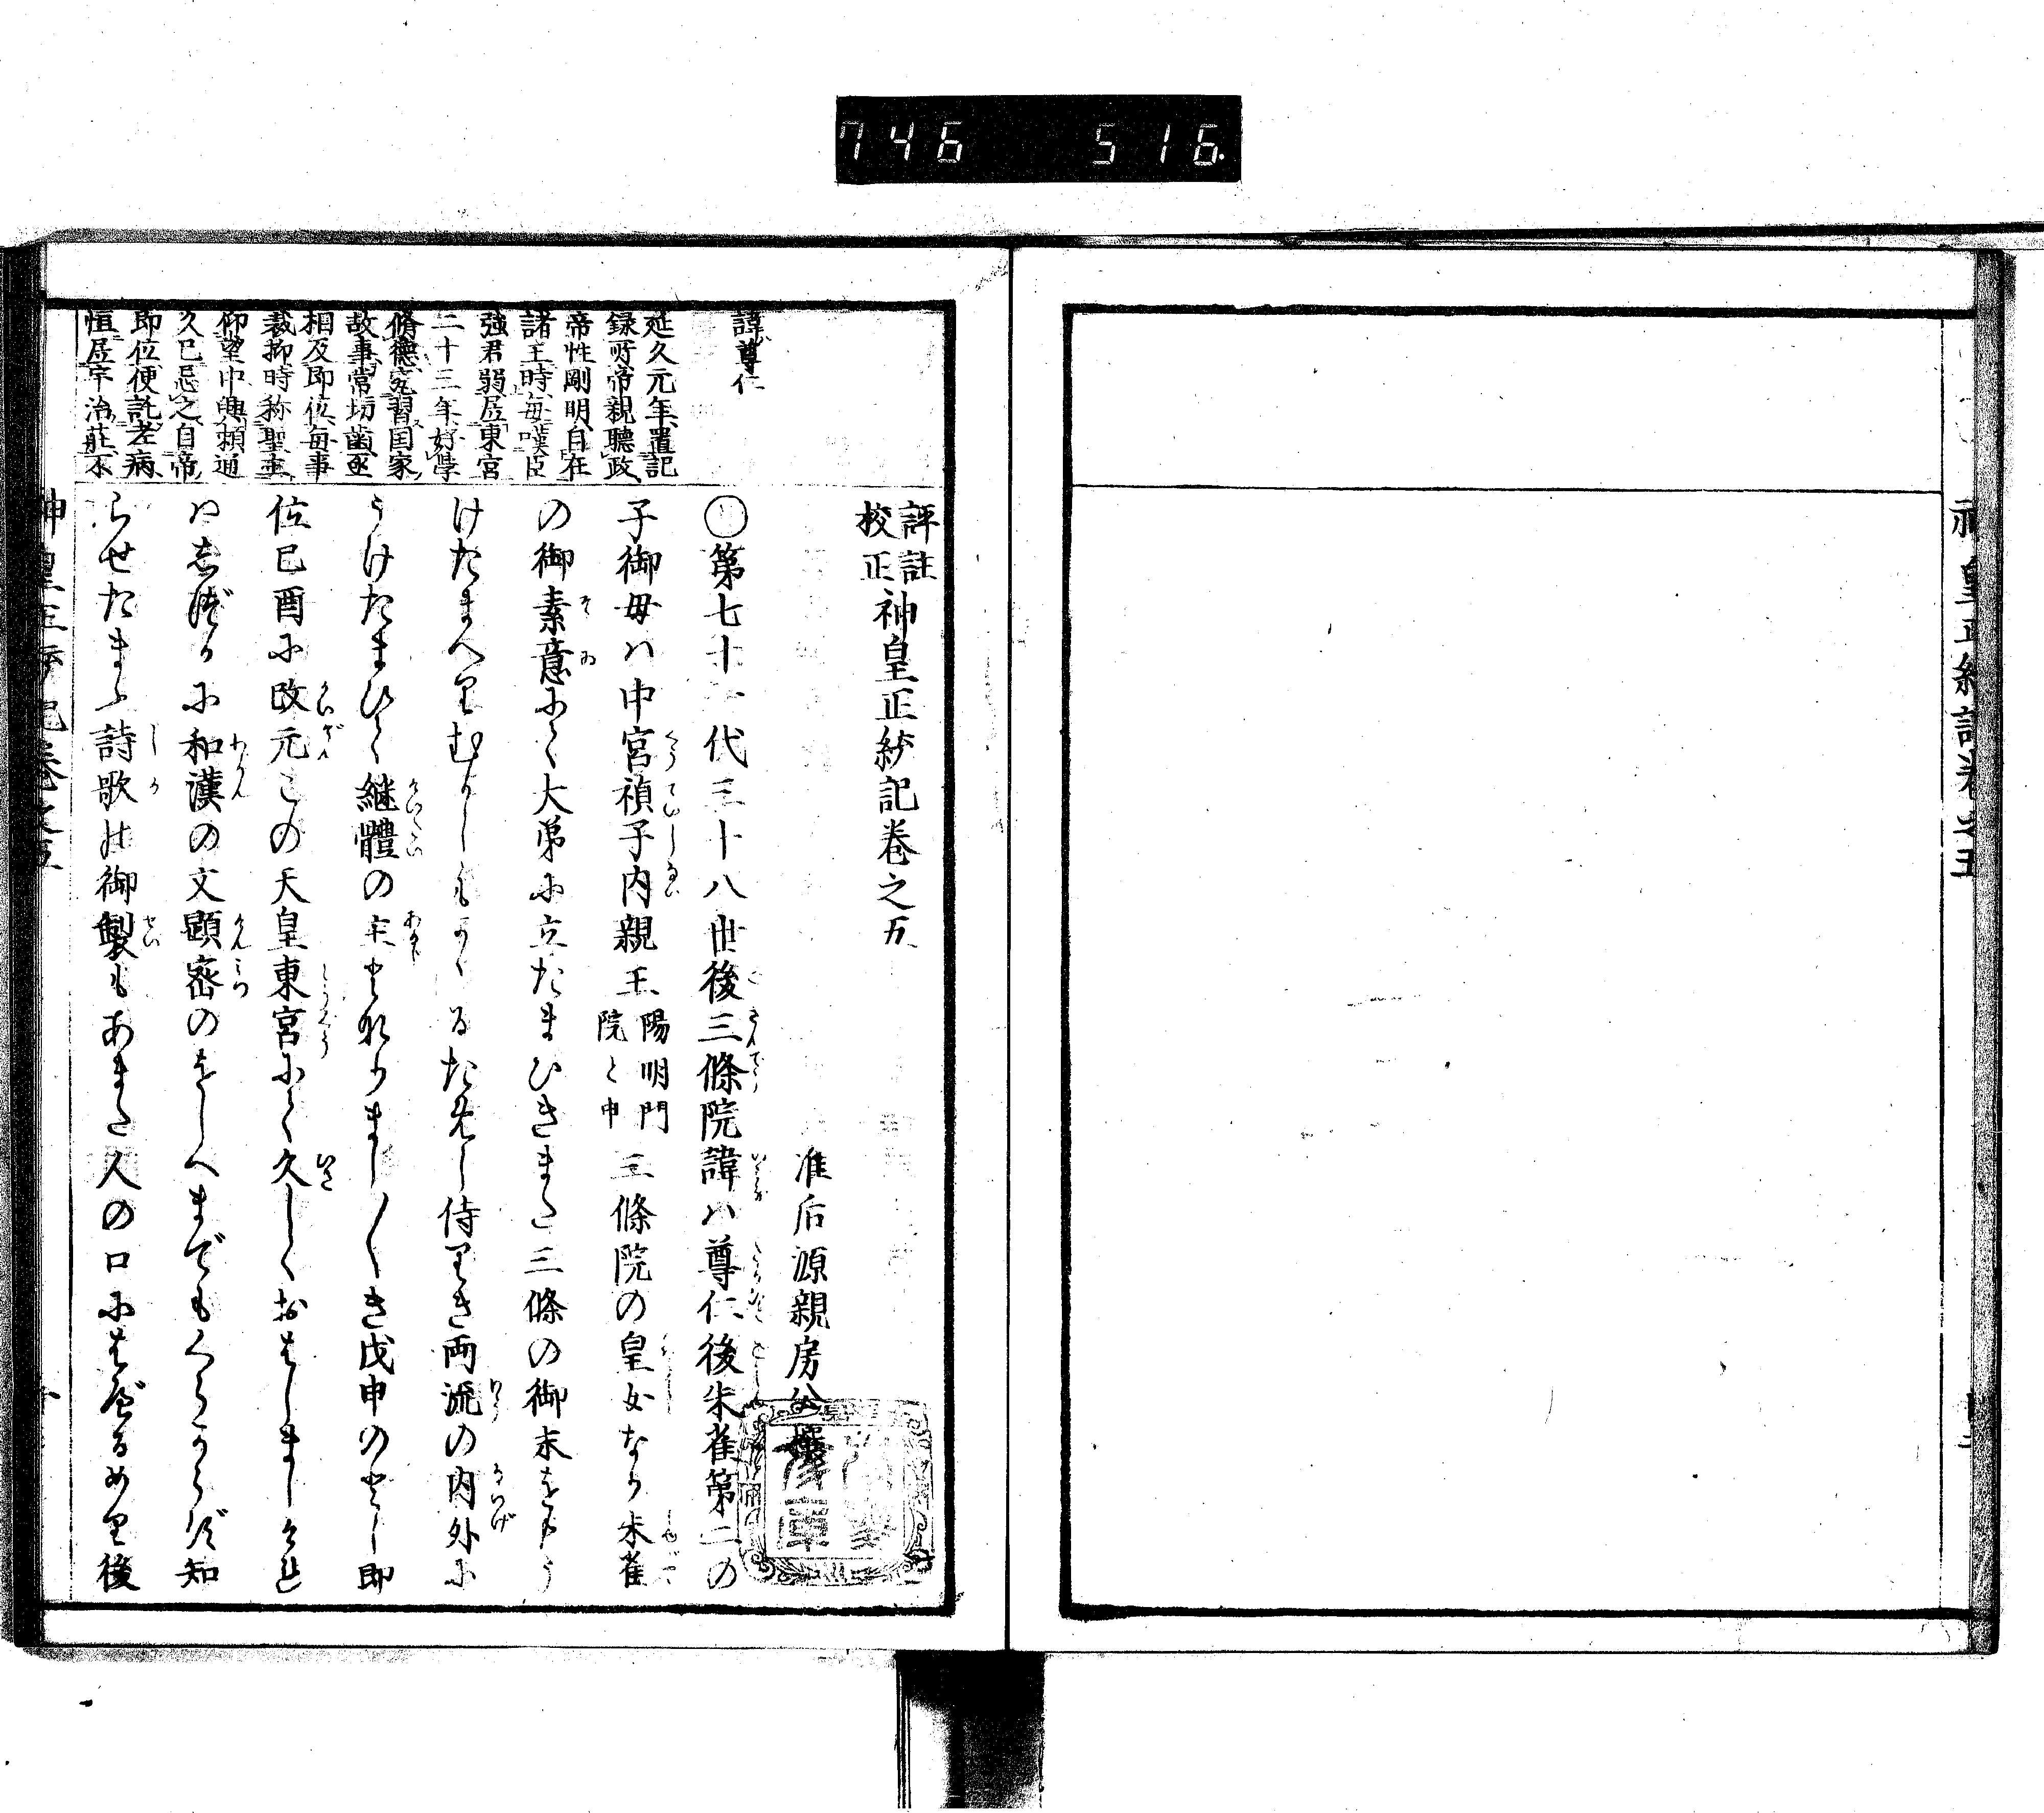 746 516.
評註
校正
神皇正統記巻之五
准后源親房公撰
諱尊仁
延久元年置記
録所帝親聴政
帝性剛明自在
諸王時毎嘆臣
強君弱居東宮
二十三年好学
脩徳究習国家
故事常切歯亟
相及即位毎事
裁抑時称聖主
仰望中興頼通
久已忌之自帝
即位便託老病
恒居宇治荘不
〇第七十一代三十八世後三條院諱ハ尊仁後朱雀第二の
子御母ハ中宮禎子内親王陽明門院と申三條院の皇女なり朱雀
の御素意にて大弟に立たまひきまた三條の御末をもう
けたまへりむかしもかゝるためし侍りき両流の内外に
うけたまひて継體の主となりまし〳〵き戊申のとし即
位己酉に改元この天皇東宮にて久しくおはしましければ
しづかに和漢の文顕密のをしへまでもくらからず知
らせたまふ詩歌の御製もあまた人の口にはべるめり後